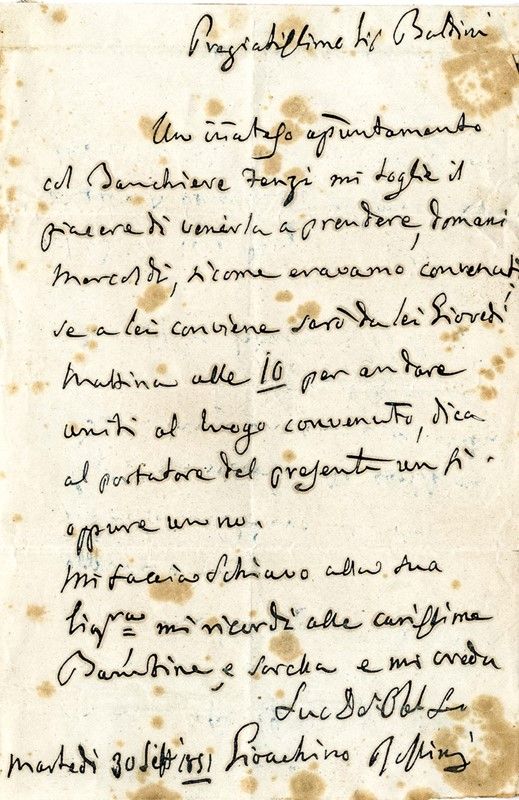 Pregiatissimo Sig Baldini
Un inateso apuntamento
col Banchiere Fenzi mi toglie il
piacere di venirla a prendere, domani
Mercoldì, sicome eravamo convenuti
se a lei conviene sarò da lei Giovedì
Mattina alle 10 per andare
uniti al luogo convenuto, dica
al portatore del presente un sì
oppure un no.
Mi faccia Schiavo alla sua
Sigra mi ricordi alle carissime
Bambine, e sorella e mi creda
Suo
Martedì 30 Sett 1851 Gioachino Rossini